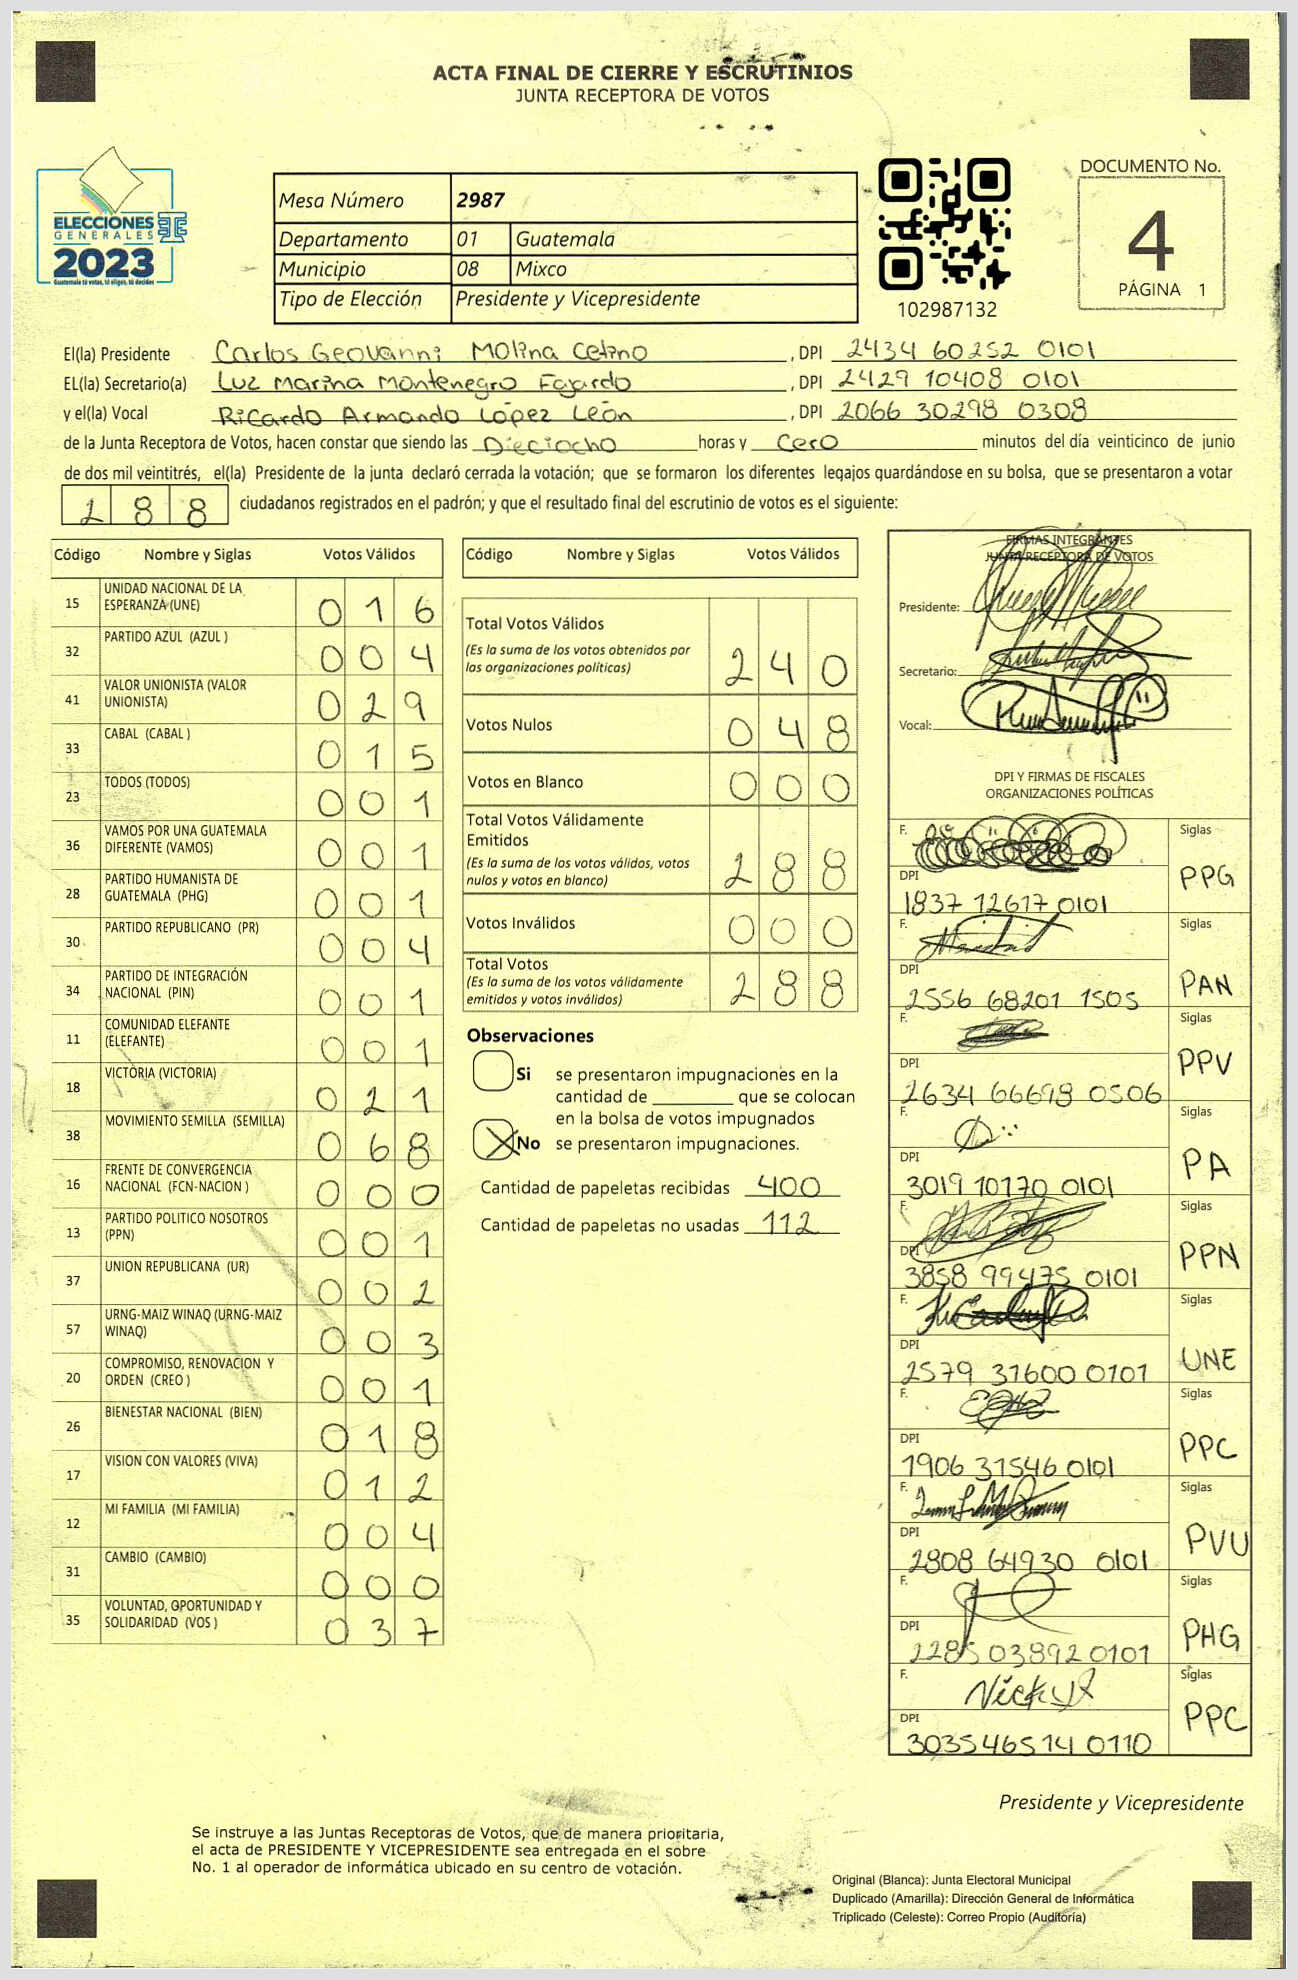 ACTA FINAL DE CIERRE Y ESCRUTINIOS
JUNTA RECEPTORA DE VOTOS
ELECCIONES
GENERALES
2023
Guatemala tú votas, tú eliges, tú decides
Mesa Número 2987
Departamento 01 Guatemala
Municipio 08 Mixco
Tipo de Elección Presidente y Vicepresidente
102987132
DOCUMENTO No.
4
PÁGINA 1
El(la) Presidente Carlos Geovanni Molina Cetino , DPI 2434 60252 0101
EL(la) Secretario(a) Luz Marina Montenegro Fajardo , DPI 2429 10408 0101
y el(la) Vocal Ricardo Armando López León , DPI 2066 30298 0308
de la Junta Receptora de Votos, hacen constar que siendo las Dieciocho horas y cero minutos del día veinticinco de junio
de dos mil veintitrés, el(la) Presidente de la junta declaró cerrada la votación; que se formaron los diferentes legajos guardándose en su bolsa, que se presentaron a votar
288 ciudadanos registrados en el padrón; y que el resultado final del escrutinio de votos es el siguiente:
Código Nombre y Siglas Votos Válidos
15 UNIDAD NACIONAL DE LA
ESPERANZA (UNE) 016
32 PARTIDO AZUL (AZUL ) 004
41 VALOR UNIONISTA (VALOR
UNIONISTA) 029
33 CABAL (CABAL ) 015
23 TODOS (TODOS) 001
36 VAMOS POR UNA GUATEMALA
DIFERENTE (VAMOS) 001
28 PARTIDO HUMANISTA DE
GUATEMALA (PHG) 001
30 PARTIDO REPUBLICANO (PR) 004
34 PARTIDO DE INTEGRACIÓN
NACIONAL (PIN) 001
11 COMUNIDAD ELEFANTE
(ELEFANTE) 001
18 VICTORIA (VICTORIA) 021
38 MOVIMIENTO SEMILLA (SEMILLA) 068
16 FRENTE DE CONVERGENCIA
NACIONAL (FCN-NACION ) 000
13 PARTIDO POLITICO NOSOTROS
(PPN) 001
37 UNION REPUBLICANA (UR) 002
57 URNG-MAIZ WINAQ (URNG-MAIZ
WINAQ) 003
20 COMPROMISO, RENOVACION Y
ORDEN (CREO ) 001
26 BIENESTAR NACIONAL (BIEN) 018
17 VISION CON VALORES (VIVA) 012
12 MI FAMILIA (MI FAMILIA) 004
31 CAMBIO (CAMBIO) 000
35 VOLUNTAD, OPORTUNIDAD Y
SOLIDARIDAD (VOS ) 037
Código Nombre y Siglas Votos Válidos
Total Votos Válidos
(Es la suma de los votos obtenidos por
las organizaciones políticas) 240
Votos Nulos 048
Votos en Blanco 000
Total Votos Válidamente
Emitidos
(Es la suma de los votos válidos, votos
nulos y votos en blanco) 288
Votos Inválidos 000
Total Votos
(Es la suma de los votos válidamente
emitidos y votos inválidos) 288
Observaciones
Si se presentaron impugnaciones en la
cantidad de ________ que se colocan
en la bolsa de votos impugnados
No se presentaron impugnaciones.
Cantidad de papeletas recibidas 400
Cantidad de papeletas no usadas 112
FIRMAS INTEGRANTES
JUNTA RECEPTORA DE VOTOS
Presidente:
Secretario:
Vocal:
DPI Y FIRMAS DE FISCALES
ORGANIZACIONES POLÍTICAS
F. Siglas
DPI PPG
1837 12617 0101
F. Siglas
DPI PAN
2556 68201 1505
F. Siglas
DPI PPV
2634 66698 0506
F. Siglas
DPI PA
3019 10170 0101
F. Siglas
DPI PPN
3858 99475 0101
F. Siglas
DPI UNE
2579 31600 0101
F. Siglas
DPI PPC
1906 31546 0101
F. Siglas
DPI PVU
2808 64930 0101
F. Siglas
DPI PHG
2285 03892 0101
F. Siglas
DPI PPC
3035 46514 0110
Presidente y Vicepresidente
Se instruye a las Juntas Receptoras de Votos, que de manera prioritaria,
el acta de PRESIDENTE Y VICEPRESIDENTE sea entregada en el sobre
No. 1 al operador de informática ubicado en su centro de votación.
Original (Blanca): Junta Electoral Municipal
Duplicado (Amarilla): Dirección General de Informática
Triplicado (Celeste): Correo Propio (Auditoría)